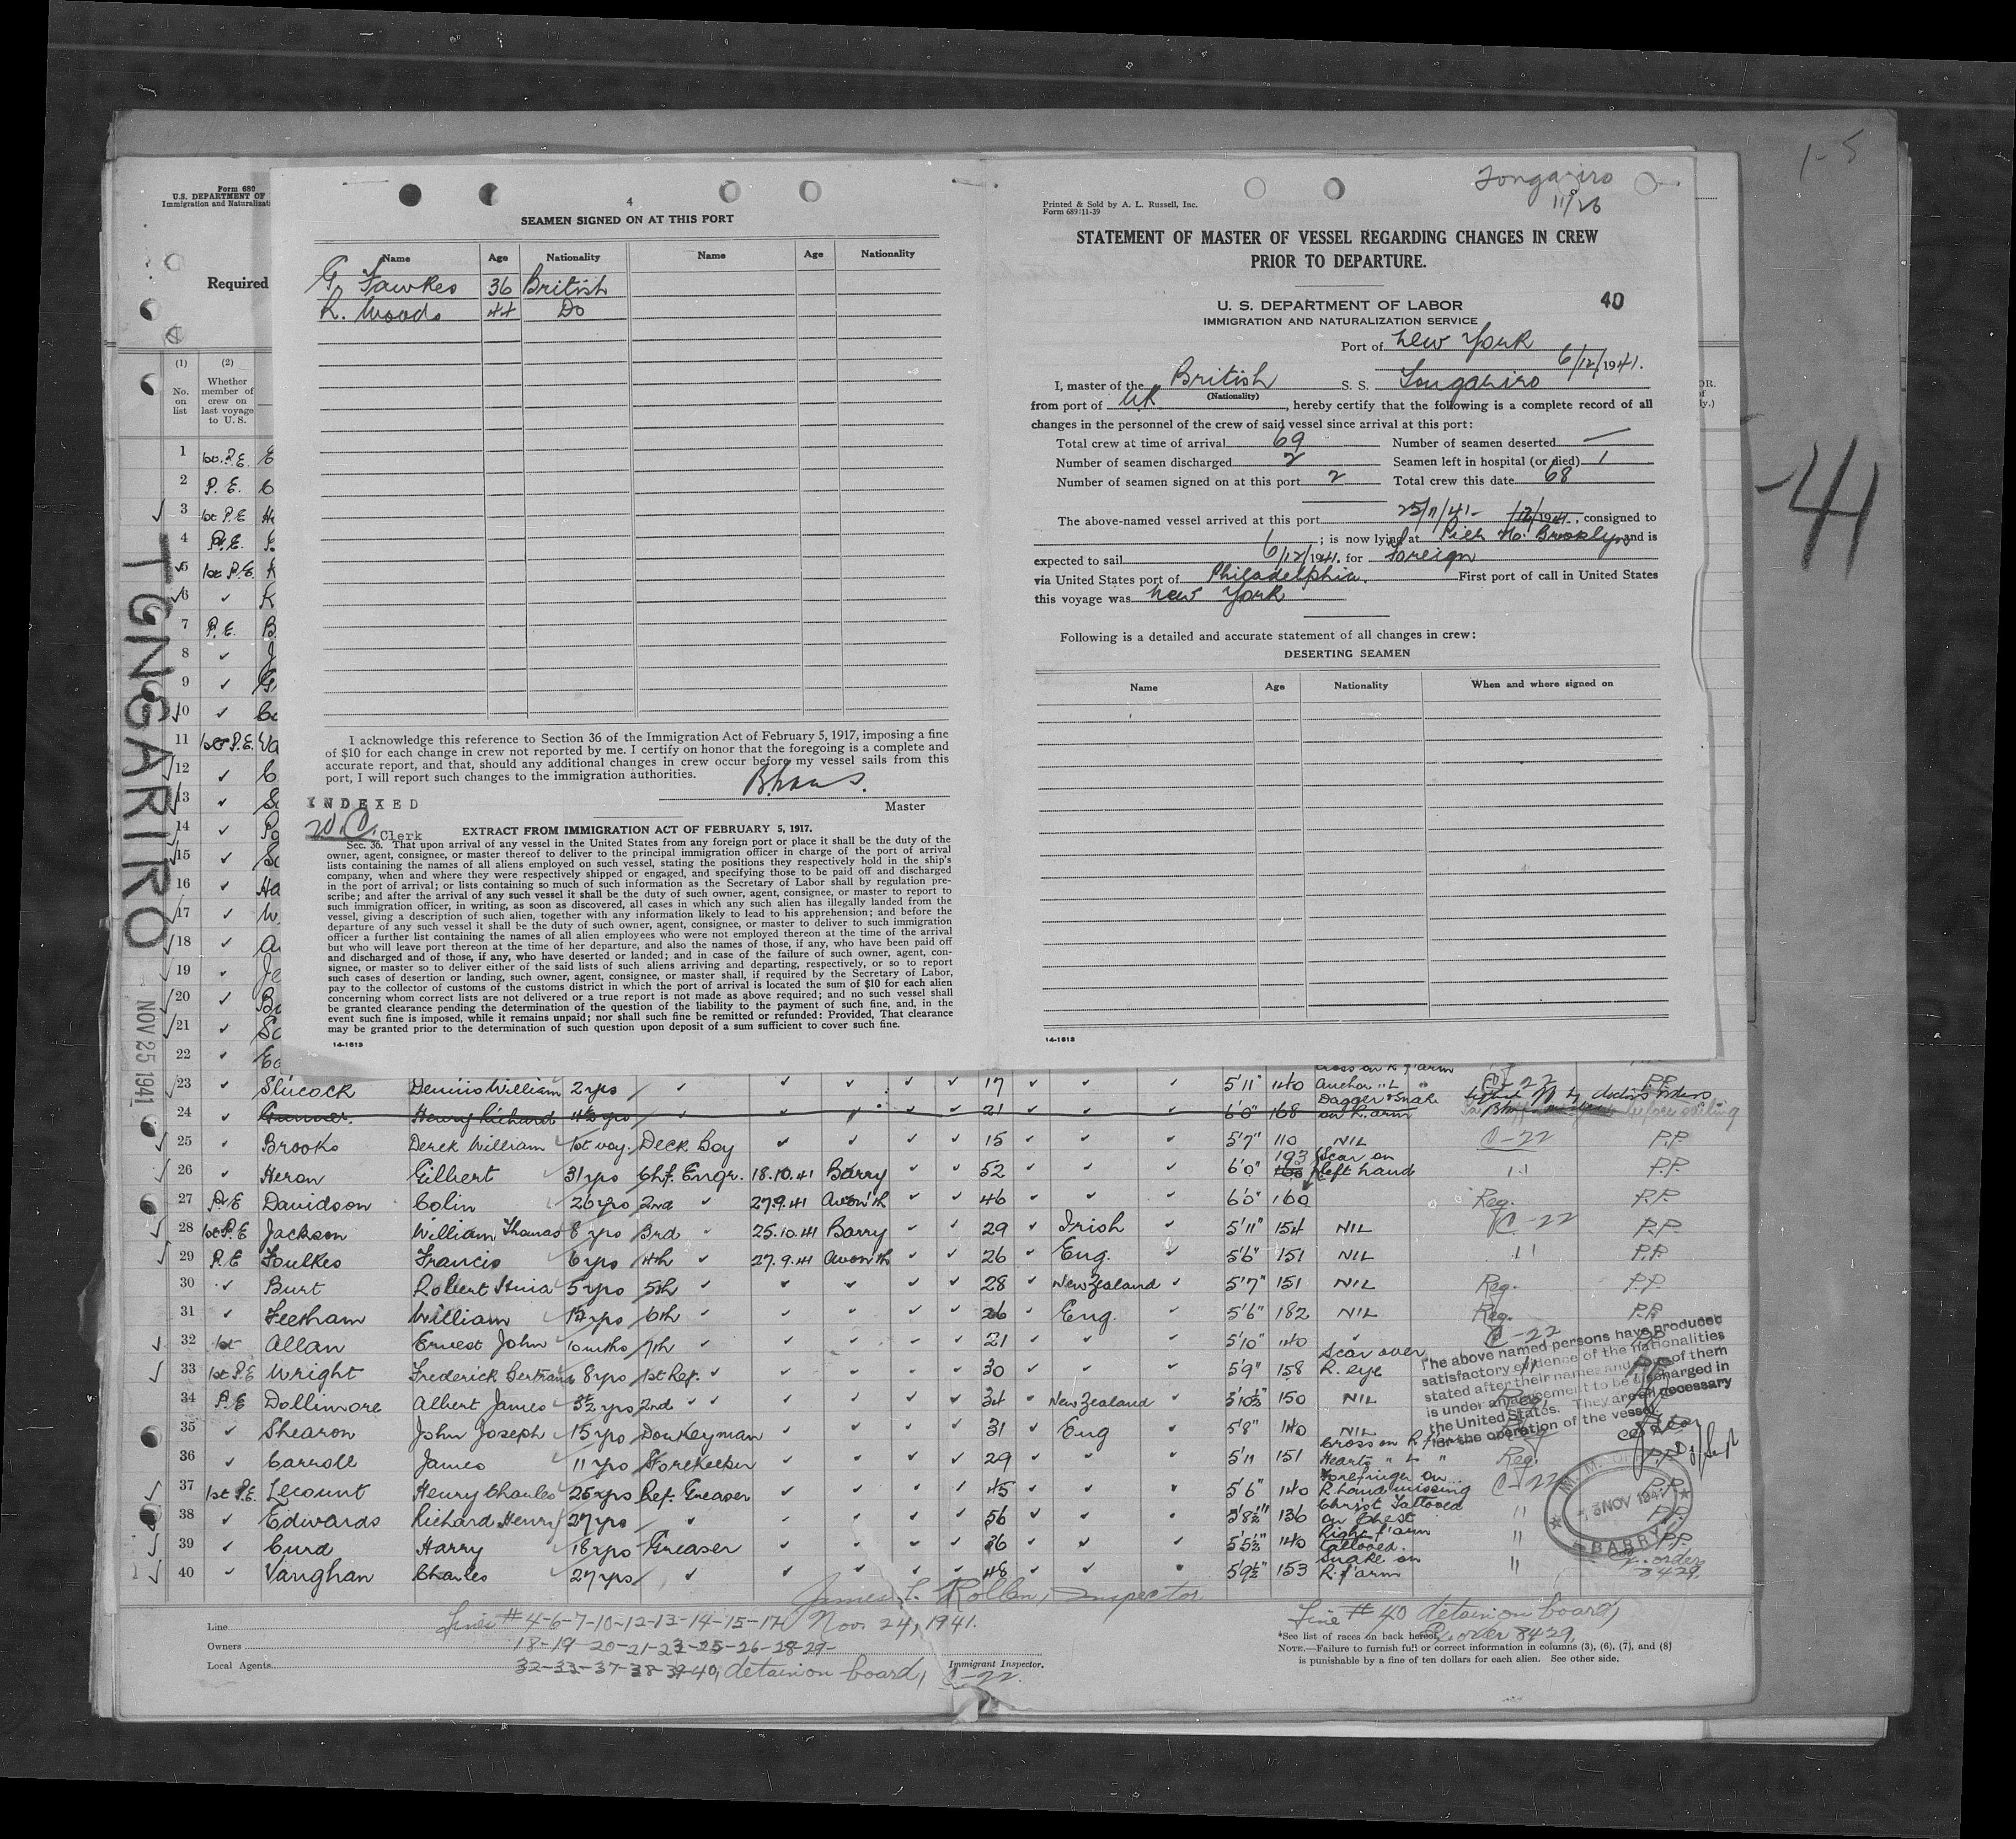 Tongariro
11/26
1-5
-41
Form 680
U.S. DEPARTMENT OF
Immigration and Naturalizati
Required
4
SEAMEN SIGNED ON AT THIS PORT
Name Age Nationality Name Age Nationality
G. Fawkes 36 British
R. Woods 44 Do
I acknowledge this reference to Section 36 of the Immigration Act of February 5, 1917, imposing a fine
of $10 for each change in crew not reported by me. I certify on honor that the foregoing is a complete and
accurate report, and that, should any additional changes in crew occur before my vessel sails from this
port, I will report such changes to the immigration authorities.
Master
INDEXED
W.C. Clerk
EXTRACT FROM IMMIGRATION ACT OF FEBRUARY 5, 1917.
Sec. 36. That upon arrival of any vessel in the United States from any foreign port or place it shall be the duty of the
owner, agent, consignee, or master thereof to deliver to the principal immigration officer in charge of the port of arrival
lists containing the names of all aliens employed on such vessel, stating the positions they respectively hold in the ship's
company, when and where they were respectively shipped or engaged, and specifying those to be paid off and discharged
in the port of arrival; or lists containing so much of such information as the Secretary of Labor shall by regulation pre-
scribe; and after the arrival of any such vessel it shall be the duty of such owner, agent, consignee, or master to report to
such immigration officer, in writing, as soon as discovered, all cases in which any such alien has illegally landed from the
vessel, giving a description of such alien, together with any information likely to lead to his apprehension; and before the
departure of any such vessel it shall be the duty of such owner, agent, consignee, or master to deliver to such immigration
officer a further list containing the names of all alien employees who were not employed thereon at the time of the arrival
but who will leave port thereon at the time of her departure, and also the names of those, if any, who have been paid off
and discharged and of those, if any, who have deserted or landed; and in case of the failure of such owner, agent, con-
signee, or master so to deliver either of the said lists of such aliens arriving and departing, respectively, or so to report
such cases of desertion or landing, such owner, agent, consignee, or master shall, if required by the Secretary of Labor,
pay to the collector of customs of the customs district in which the port of arrival is located the sum of $10 for each alien
concerning whom correct lists are not delivered or a true report is not made as above required; and no such vessel shall
be granted clearance pending the determination of the question of the liability to the payment of such fine, and, in the
event such fine is imposed, while it remains unpaid; nor shall such fine be remitted or refunded: Provided, That clearance
may be granted prior to the determination of such question upon deposit of a sum sufficient to cover such fine.
14-1613
Printed & Sold by A. L. Russell, Inc.
Form 689 11-39
STATEMENT OF MASTER OF VESSEL REGARDING CHANGES IN CREW
PRIOR TO DEPARTURE.
U. S. DEPARTMENT OF LABOR
40
IMMIGRATION AND NATURALIZATION SERVICE
Port of New York
6/12/1941.
I, master of the British S. S. Tongariro
(Nationality)
from port of UK, hereby certify that the following is a complete record of all
changes in the personnel of the crew of said vessel since arrival at this port:
Total crew at time of arrival 69 Number of seamen deserted —
Number of seamen discharged 2 Seamen left in hospital (or died) 1
Number of seamen signed on at this port 2 Total crew this date 68
The above-named vessel arrived at this port 25/11/41- /12/1941., consigned to
; is now lying at Pier 40. Brooklyn and is
expected to sail 6/12/1941. for Foreign
via United States port of Philadelphia. First port of call in United States
this voyage was New York
Following is a detailed and accurate statement of all changes in crew:
DESERTING SEAMEN
Name Age Nationality When and where signed on
14-1613
TONGARIRO
NOV 25 1941
(1) (2)
No. on list
Whether member of crew on last voyage to U. S.
1 1st. P.E.
2 P.E.
3 1st P.E
4 P.E.
5 1st P.E.
6 ✓
7 P.E.
8 ✓
9 ✓
10 ✓
11 1st P.E.
12 ✓
13 ✓
14 ✓
15 ✓
16 ✓
17 ✓
18 ✓
19 ✓
20 ✓
21 ✓
22 ✓
23 ✓ Slucock Dennis William 2 yrs ✓ 17 5'11" 140 Anchor " L " C-22 P.P.
24 ✓ Gunner. Henry Richard 4½ yrs 21 6'0" 168 Dagger & Snake on R. arm
25 ✓ Brooks Derek William 1st voy. Deck Boy 15 5'7" 110 NIL C-22 P.P.
26 ✓ Heron Gilbert 31 yrs Chf. Engr. 18.10.41 Barry 52 6'0" 193 Scar on left hand 11 P.P.
27 P.E Davidson Colin 26 yrs 2nd 27.9.41 Avon'th 46 6'0" 160 Reg. P.P.
28 1st P.E Jackson William Thomas 8 yrs 3rd 25.10.41 Barry 29 Irish 5'11" 154 NIL C-22 P.P.
29 P.E Foulkes Francis 6 yrs 4th 27.9.41 Avonth 26 Eng. 5'6" 151 NIL 11 P.P.
30 ✓ Burt Robert 5 yrs 5th 28 New Zealand 5'7" 151 NIL Reg. P.P.
31 ✓ Feetham William 1½ yrs 6th 26 Eng. 5'6" 182 NIL Reg. P.P.
32 1st Allan Ernest John 10 mths 7th 21 5'10" 140 C-22
33 1st P.E Wright Frederick Bertrand 8 yrs 1st Ref. 30 5'9" 158 Scar over R. eye
34 P.E Dollimore Albert James 3½ yrs 2nd 34 New Zealand 5'10½" 150 NIL
35 ✓ Shearon John Joseph 15 yrs Donkeyman 31 Eng 5'8" 140 NIL
36 ✓ Carroll James 11 yrs Storekeeper 29 5'11 151 Cross on R. f'arm Heart " L " Reg. P.P.
37 1st P.E. Lecount Henry Charles 25 yrs Ref. Greaser 45 5'6" 140 Forefinger on R. hand missing C-22 P.P.
38 ✓ Edwards Richard Henry 27 yrs ✓ 56 5'8½" 136 Christ Tattooed on Chest " P.P.
39 ✓ Curd Harry 18 yrs Greaser 36 5'5½" 140 Right f'arm tattooed. " P.P.
40 ✓ Vaughan Charles 27 yrs ✓ 48 5'9½" 153 Snake on R. f'arm " order 8429.
The above named persons have produced
satisfactory evidence of the nationalities
stated after their names and none of them
is under an agreement to be discharged in
the United States. They are all necessary
for the operation of the vessel.
3 NOV 1941
BARRY
James L. Rollan, Inspector
Line Lines # 4-6-7-10-12-13-14-15-17- Nov. 24, 1941.
Owners 18-19-20-21-23-25-26-28-29-
Local Agents 32-33-37-38-39-40, detain on board, C-22.
Immigrant Inspector.
Line # 40 detain on board,
Ex order 8429,
*See list of races on back hereof.
NOTE.—Failure to furnish full or correct information in columns (3), (6), (7), and (8)
is punishable by a fine of ten dollars for each alien. See other side.